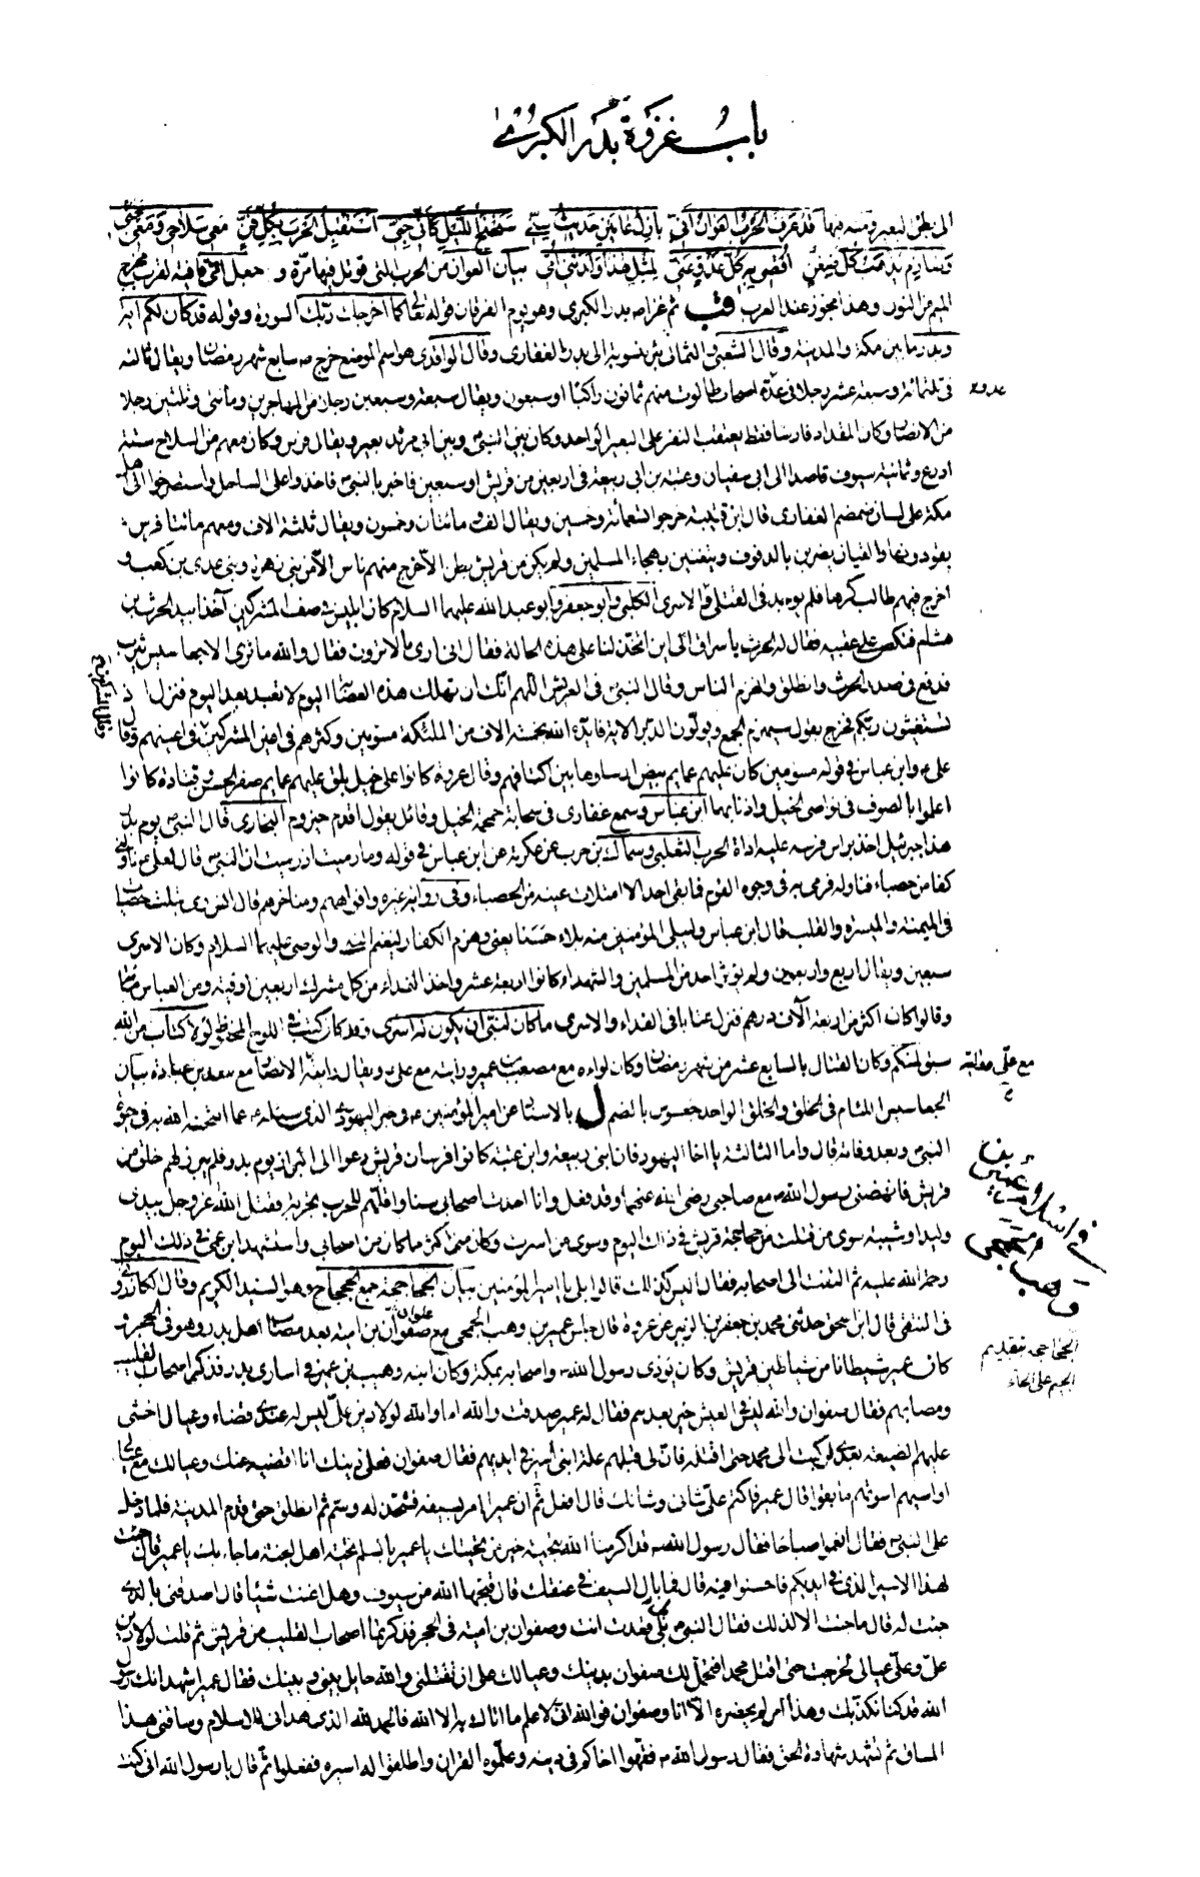 باب غزوة بدر الكبرى
الى بطن البعير ومنه فيها قد عرف الحرب العوان انى بازل عامين حديث سنى سنحنح الليل كانى جنى استقبل الحرب بكل فن معى سلاحى ومعى مجنى
وصارم يذهب كل ضغن اقصى به كل عدو عنى لمثل هذا ولدتنى امى بيان العوان من الحرب التى قوتل فيها مرة و جعل القافية لقرب مخرج
الميم من النون وهذا يجوز عند العرب قب ثم غزاه بدر الكبرى وهو يوم الفرقان قوله تعالى كما اخرجك ربك السورة وقوله قد كان لكم اية
وبدر ما بين مكة والمدينة وقال الشعبى والثمالى بئر منسوبة الى بدر الغفارى وقال الواقدى هو اسم الموضع خرج ص سابع شهر رمضان ويقال ثالثه
فى ثلثمائة وسبعة عشر رجلا فى عدة اصحاب طالوت منهم ثمانون راكبا او سبعون ويقال سبعة وسبعين رجلا من المهاجرين ومأتى وثلثين رجلا
من الانصار وكان المقداد فارسا فقط يعتقب النفر على البعير الواحد وكان بين النبى وبين ابى مرثد بعير ويقال فرس وكان معهم من السلاح ستة
ادرع وثمانية سيوف قاصدا الى ابى سفيان وعتبة بن ابى ربيعة فى اربعين من قريش او سبعين فاخبر بالنبى فاخذوا على الساحل واستصرخوا الى اهل
مكة على لسان ضمضم الغفارى قال ابن قتيبة خرجوا تسعمائة وخمسين ويقال الف ومائتان وخمسون ويقال ثلثة الاف ومعهم مائتا فرس
يقودونها والقيان يضربن بالدفوف ويتغنين بهجاء المسلمين ولم يكن من قريش بطن الا خرج منهم ناس الا من بنى زهرة وبنى عدى بن كعب و
اخرج فيهم طالب كرها فلم يوجد فى القتلى ولا الاسرى الكلبى وابو جعفر وابو عبد الله عليهما السلام كان ابليس فى صف المشركين آخذا بيد الحرث بن
هشام فنكص على عقبيه فقال له الحرث يا سراق الى اين اتخذلنا على هذه الحالة فقال انى ارى ما لا ترون فقال والله ما نرى الا جعاسيس يثرب
فدفع فى صدر الحرث وانطلق وانهزم الناس وقال النبى فى العريش اللهم انك ان تهلك هذه العصابة اليوم لا تعبد بعد اليوم فنزل اذ
تستغيثون ربكم فخرج يقول سيهزم الجمع ويولون الدبر الاية فايده الله بخمسة الاف من الملئكة مسومين وكثرهم فى اعين المشركين وقلل المشركين فى اعينهم وقال
على ع وابن عباس فى قوله مسومين كان عليهم عمايم بيض ارسلوها بين اكتافهم وقال عروة كانوا على خيل بلق عليهم عمايم صفر الحسن وقتادة كانوا
اعلموا بالصوف فى نواصى الخيل واذنابها ابن عباس وسمع غفارى فى سحابة حمحمة الخيل وقائل يقول اقدم حيزوم البخارى قال النبى يوم بدر
هذا جبرئيل اخذ براس فرسه عليه اداة الحرب الثعلبى وسماك بن حرب عن عكرمة عن ابن عباس فى قوله وما رميت اذ رميت ان النبى قال لعلى ع ناولنى
كفا من حصباء فناوله فرمى به فى وجوه القوم فما بقى احد الا امتلات عينه من الحصباء وفى رواية غيره وافواههم ومناخرهم قال انس رمى بثلث حصيات
فى الميمنة والميسرة والقلب قال ابن عباس وليبلى المؤمنين منه بلاء حسنا يعنى وهزم الكفار ليغنم النبى والوصى عليهما السلام وكان الاسرى
سبعين ويقال اربع واربعين ولم يؤثر احد من المسلمين والشهداء كانوا اربعة عشر واخذ الفداء من كل مشرك اربعين اوقية ومن العباس مأتا
وقالوا كان اكثر من اربعة آلاف درهم فنزل عتابا فى الفداء والاسرى ما كان لنبى ان يكون له اسرى وقد كان كتب فى اللوح المحفوظ لولا كتاب من الله
سبق لمسكم وكان القتال بالسابع عشر من شهر رمضان وكان لواءه مع مصعب بن عمير ورايته مع على ع ويقال راية الانصار مع سعد بن عبادة بيان
الجعاسيس اللئام فى الخلق والخلق الواحد جعسوس بالضم ل بالاسناد عن امير المؤمنين ع وحبر اليهودى الذى سئله عما امتحنه الله به فى حيوة
النبى وبعد وفاته قال واما الثالثة يا اخا اليهود فان ابنى ربيعة وابن عتبة كانوا فرسان قريش دعوا الى البراز يوم بدر فلم يبرز لهم خلق من
قريش فانهضنى رسول الله مع صاحبى رضى الله عنهما وقد فعل وانا احدث اصحابى سنا واقلهم للحرب تجربة فقتل الله عز وجل بيدى
وليدا وشيبة سوى من قتلت من جحاجحة قريش فى ذلك اليوم وسوى من اسرت وكان منى اكثر مما كان من اصحابى واستشهد ابن عمى فى ذلك اليوم
رحمة الله عليه ثم التفت الى اصحابه فقال اليس كذلك قالوا بلى يا امير المؤمنين بيان الجحاجحة جمع الجحجاح وهو السيد الكريم وقال الكازرونى
فى المنتقى قال ابن اسحق حدثنى محمد بن جعفر بن الزبير عن عروة قال جلس عمير بن وهب الجمحى مع صفوان بن امية بعد مصاب اهل بدر وهو فى الحجر و
كان عمير شيطانا من شياطين قريش وكان يوذى رسول الله ص واصحابه بمكة وكان ابنه وهيب بن عمير فى اسارى بدر فذكر اصحاب القليب
ومصابهم فقال صفوان والله ليس فى العيش خير بعدهم فقال له عمير صدقت والله اما والله لولا دين على ليس له عندى قضاء وعيال اخشى
عليهم الضيعة بعدى لركبت الى محمد حتى اقتله فان لى قبلهم علة ابنى اسير فى ايديهم فقال صفوان فعلى دينك انا اقضيه عنك وعيالك مع عيالى
اواسيهم اسوتهم ما بقوا قال عمير فاكتم على شانى وشانك قال افعل ثم ان عمير امر بسيفه فشحذ له وسم ثم انطلق حتى قدم المدينة فلما دخل
على النبى فقال انعموا صباحا فقال رسول الله ص قد اكرمنا الله بتحية خير من تحيتك يا عمير بالسلم تحية اهل الجنة ما جاء بك يا عمير قال جئت
لهذا الاسير الذى فى ايديكم فاحسنوا فيه قال فما بال السيف فى عنقك قال قبحها الله من سيوف وهل اغنت شيئا قال اصدقنى بالذى
جئت له قال ما جئت الا لذلك فقال النبى بلى قعدت انت وصفوان بن امية فى الحجر فذكرتما اصحاب القليب من قريش ثم قلت لولا دين
على وعلى عيالى لخرجت حتى اقتل محمدا فتحمل لك صفوان بدينك وعيالك على ان تقتلنى والله حايل بينى وبينك فقال عمير اشهد انك رسول
الله قد كنا نكذبك وهذا امر لم يحضره الا انا وصفوان فوالله انى لاعلم ما اتاك به الا الله فالحمد لله الذى هدانى للاسلام وساقنى هذا
المساق ثم تشهد شهادة الحق فقال رسول الله ص فقهوا اخاكم فى دينه وعلموه القران واطلقوا له اسيره ففعلوا ثم قال يا رسول الله انى كنت
الجحاجى بتقديم
الجيم على الحاء